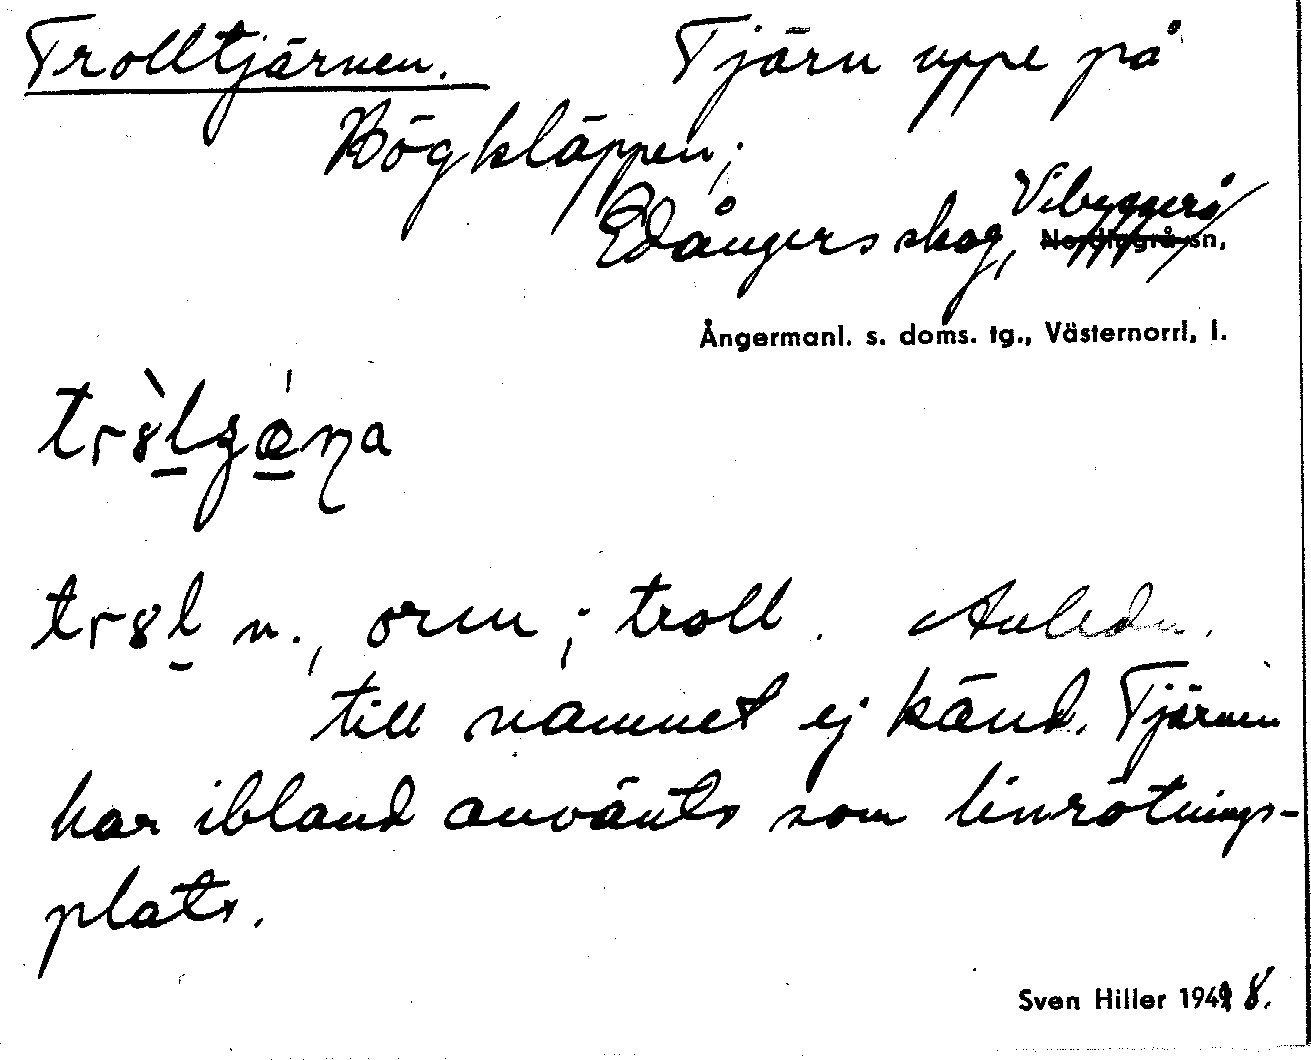 Trolltjärnen. Tjärn uppe på
Högkläppen;
Edångers skog, Vibyggerå
Nordingrå sn,
Ångermanl. s. doms. tg., Västernorrl. l.
n., orm; troll. Anledn.
till namnet ej känd. Tjärnen
har ibland använts som linrötnings-
plats.
Sven Hiller 1948.